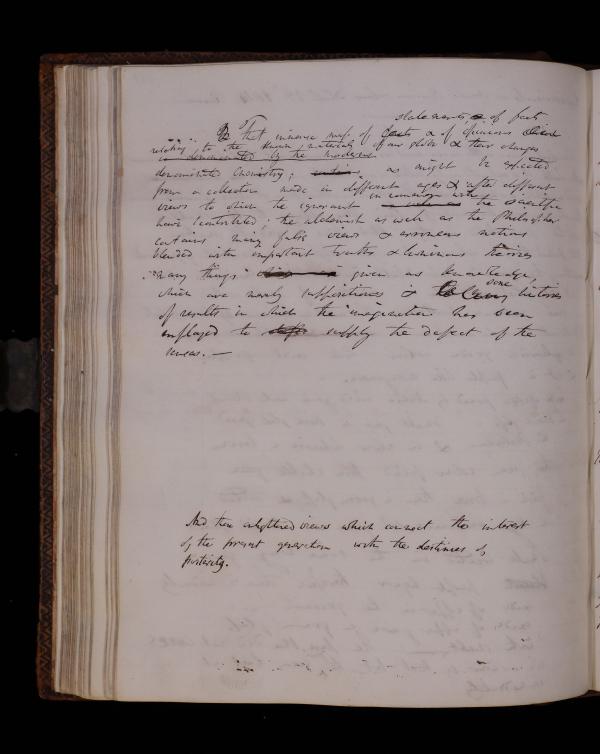 statements & of facts
That immense mass of & of opinions
relating to the known materials of our globe & their changes
denominated by the moderns
denominated Chemistry; as might be expected
from a collection made in different ages & after different
in common with
views to which the ignorant the scientific
have contributed; the alchemist as well as the Philosopher
contains many false views & erroneous notions
blended with important truths & luminous theories
many things given as knowledge,
which are merely suppositions & some histories
of results in which the imagination has been
employed to supply the defect of the
senses. —
And those enlightened views which connect the interest
of the present generation with the destinies of
posterity.